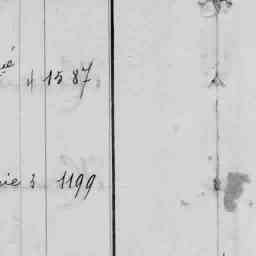 ué 4 1587
nie 3 1199